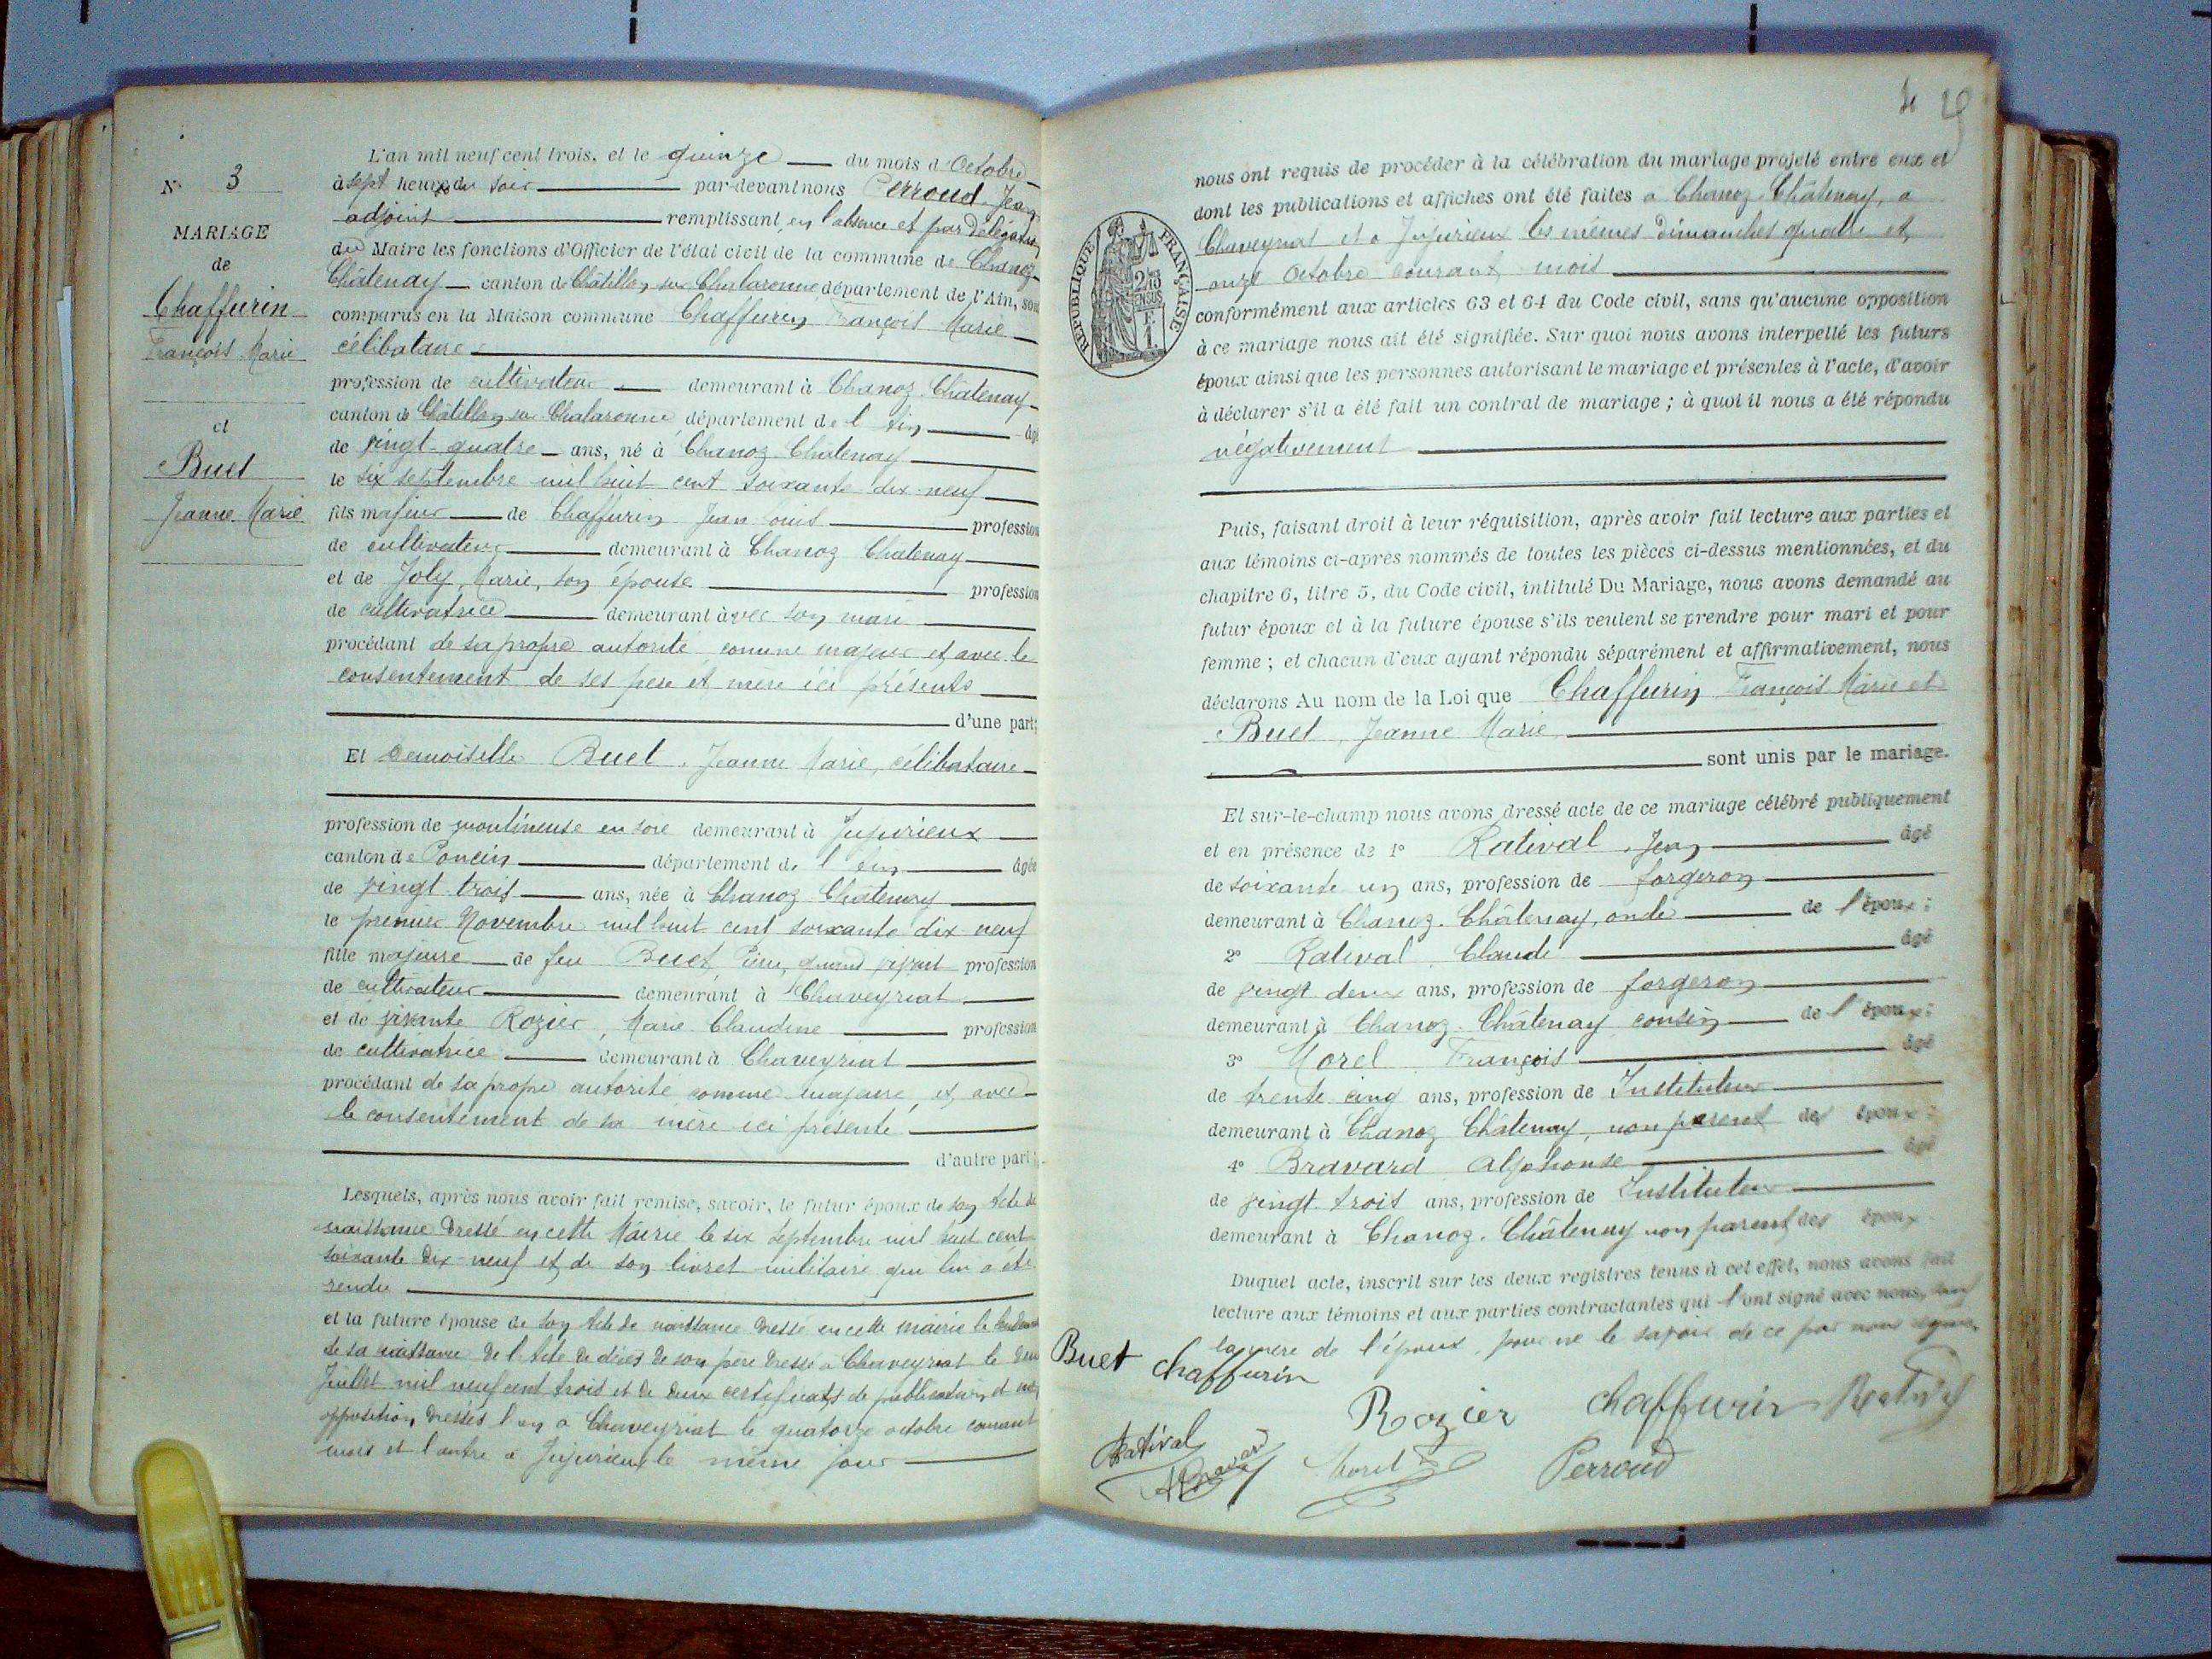 N° 3
MARIAGE
de
Chaffurin
François Marie
et
Buet
Jeanne Marie
L'an mil neuf cent trois, et le quinze du mois d'Octobre
à sept heures du soir par-devant nous Perroud Jean
adjoint remplissant, en l'absence et par délégation
du Maire les fonctions d'Officier de l'état civil de la commune de Chanoz-
Châtenay canton de Châtillon sur Chalaronne département de l'Ain, sont
comparus en la Maison commune Chaffurin François Marie
célibataire
profession de cultivateur demeurant à Chanoz Châtenay
canton de Châtillon sur Chalaronne département de l'Ain âgé
de vingt-quatre ans, né à Chanoz Châtenay
le six septembre mil huit cent soixante dix-neuf
fils majeur de Chaffurin Jean Louis profession
de cultivateur demeurant à Chanoz Châtenay
et de Joly, Marie, son épouse profession
de cultivatrice demeurant avec son mari
procédant de sa propre autorité comme majeur et avec le
consentement de ses père et mère ici présents
d'une part;
Et Demoiselle Buet, Jeanne Marie, célibataire
profession de moulineuse en soie demeurant à Jujurieux
canton de Poncin département de l'Ain âgée
de vingt-trois ans, née à Chanoz Châtenay
le premier Novembre mil huit cent soixante dix neuf
fille majeure de feu Buet, Pierre, quand vivant profession
de cultivateur demeurant à Chaveyriat
et de vivante Rozier, Marie Claudine profession
de cultivatrice demeurant à Chaveyriat
procédant de sa propre autorité comme majeure, et avec
le consentement de sa mère ici présente
d'autre part;
Lesquels, après nous avoir fait remise, savoir, le futur époux de son Acte de
naissance dressé en cette Mairie le six septembre mil huit cent
soixante dix-neuf et de son livret militaire qui lui a été
rendu
et la future épouse de son Acte de naissance dressé en cette mairie le lendemain
de sa naissance de l'Acte de décès de son père dressé à Chaveyriat le deux
Juillet mil neuf cent trois et de deux certificats de publication et non
opposition dressés l'un à Chaveyriat le quatorze octobre courant
mois et l'autre à Jujurieux le même jour
29
RÉPUBLIQUE FRANÇAISE
nous ont requis de procéder à la célébration du mariage projeté entre eux et
dont les publications et affiches ont été faites à Chanoz-Châtenay, à
Chaveyriat et à Jujurieux les mêmes dimanches quatre et
onze Octobre courant mois
conformément aux articles 63 et 64 du Code civil, sans qu'aucune opposition
à ce mariage nous ait été signifiée. Sur quoi nous avons interpellé les futurs
époux ainsi que les personnes autorisant le mariage et présentes à l'acte, d'avoir
à déclarer s'il a été fait un contrat de mariage; à quoi il nous a été répondu
négativement
Puis, faisant droit à leur réquisition, après avoir fait lecture aux parties et
aux témoins ci-après nommés de toutes les pièces ci-dessus mentionnées, et du
chapitre 6, titre 5, du Code civil, intitulé Du Mariage, nous avons demandé au
futur époux et à la future épouse s'ils veulent se prendre pour mari et pour
femme; et chacun d'eux ayant répondu séparément et affirmativement, nous
déclarons Au nom de la Loi que Chaffurin François Marie et
Buet, Jeanne Marie
sont unis par le mariage.
Et sur-le-champ nous avons dressé acte de ce mariage célébré publiquement
et en présence de 1° Rativat, Jean âgé
de soixante un ans, profession de forgeron
demeurant à Chanoz-Châtenay, oncle de l'époux;
2° Rativat, Claude âgé
de vingt deux ans, profession de forgeron
demeurant à Chanoz-Châtenay cousin de l'époux;
3° Morel François âgé
de trente cinq ans, profession de Instituteur
demeurant à Chanoz Châtenay, non parent des époux;
4° Bravard Alphonse âgé
de vingt-trois ans, profession de Instituteur
demeurant à Chanoz-Châtenay non parent des époux
Duquel acte, inscrit sur les deux registres tenus à cet effet, nous avons fait
lecture aux témoins et aux parties contractantes qui l'ont signé avec nous, sauf
la mère de l'époux, pour ne le savoir de ce par nous
Buet chaffurin
Rozier chaffurin
Rativat ABravard Morel Perroud